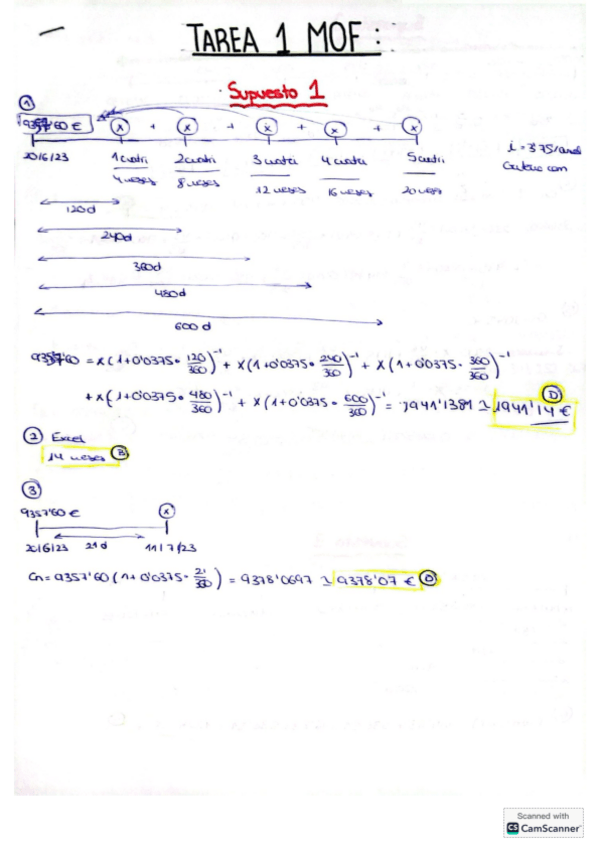 TAREA 1 MOF :
Supuesto 1
1
9357'60 € x + x + x + x + x
20/6/23 1 cuatri 2 cuatri 3 cuatri 4 cuatri 5 cuatri
4 meses 8 meses 12 meses 16 meses 20 meses
i = 3'75% anual
120d
240d
360d
480d
600 d
9357'60 = x(1+0'0375 · 120/360)^-1 + x(1+0'0375 · 240/360)^-1 + x(1+0'0375 · 360/360)^-1
+ x(1+0'0375 · 480/360)^-1 + x(1+0'0375 · 600/360)^-1 = 1941'1381 ≃ 1941'14 € D
2 Excel
14 meses B
3
9357'60 € x
20/6/23 21 d 11/7/23
Cn = 9357'60 (1+0'0375 · 21/360) = 9378'0697 ≃ 9378'07 € D
Scanned with
CS CamScanner